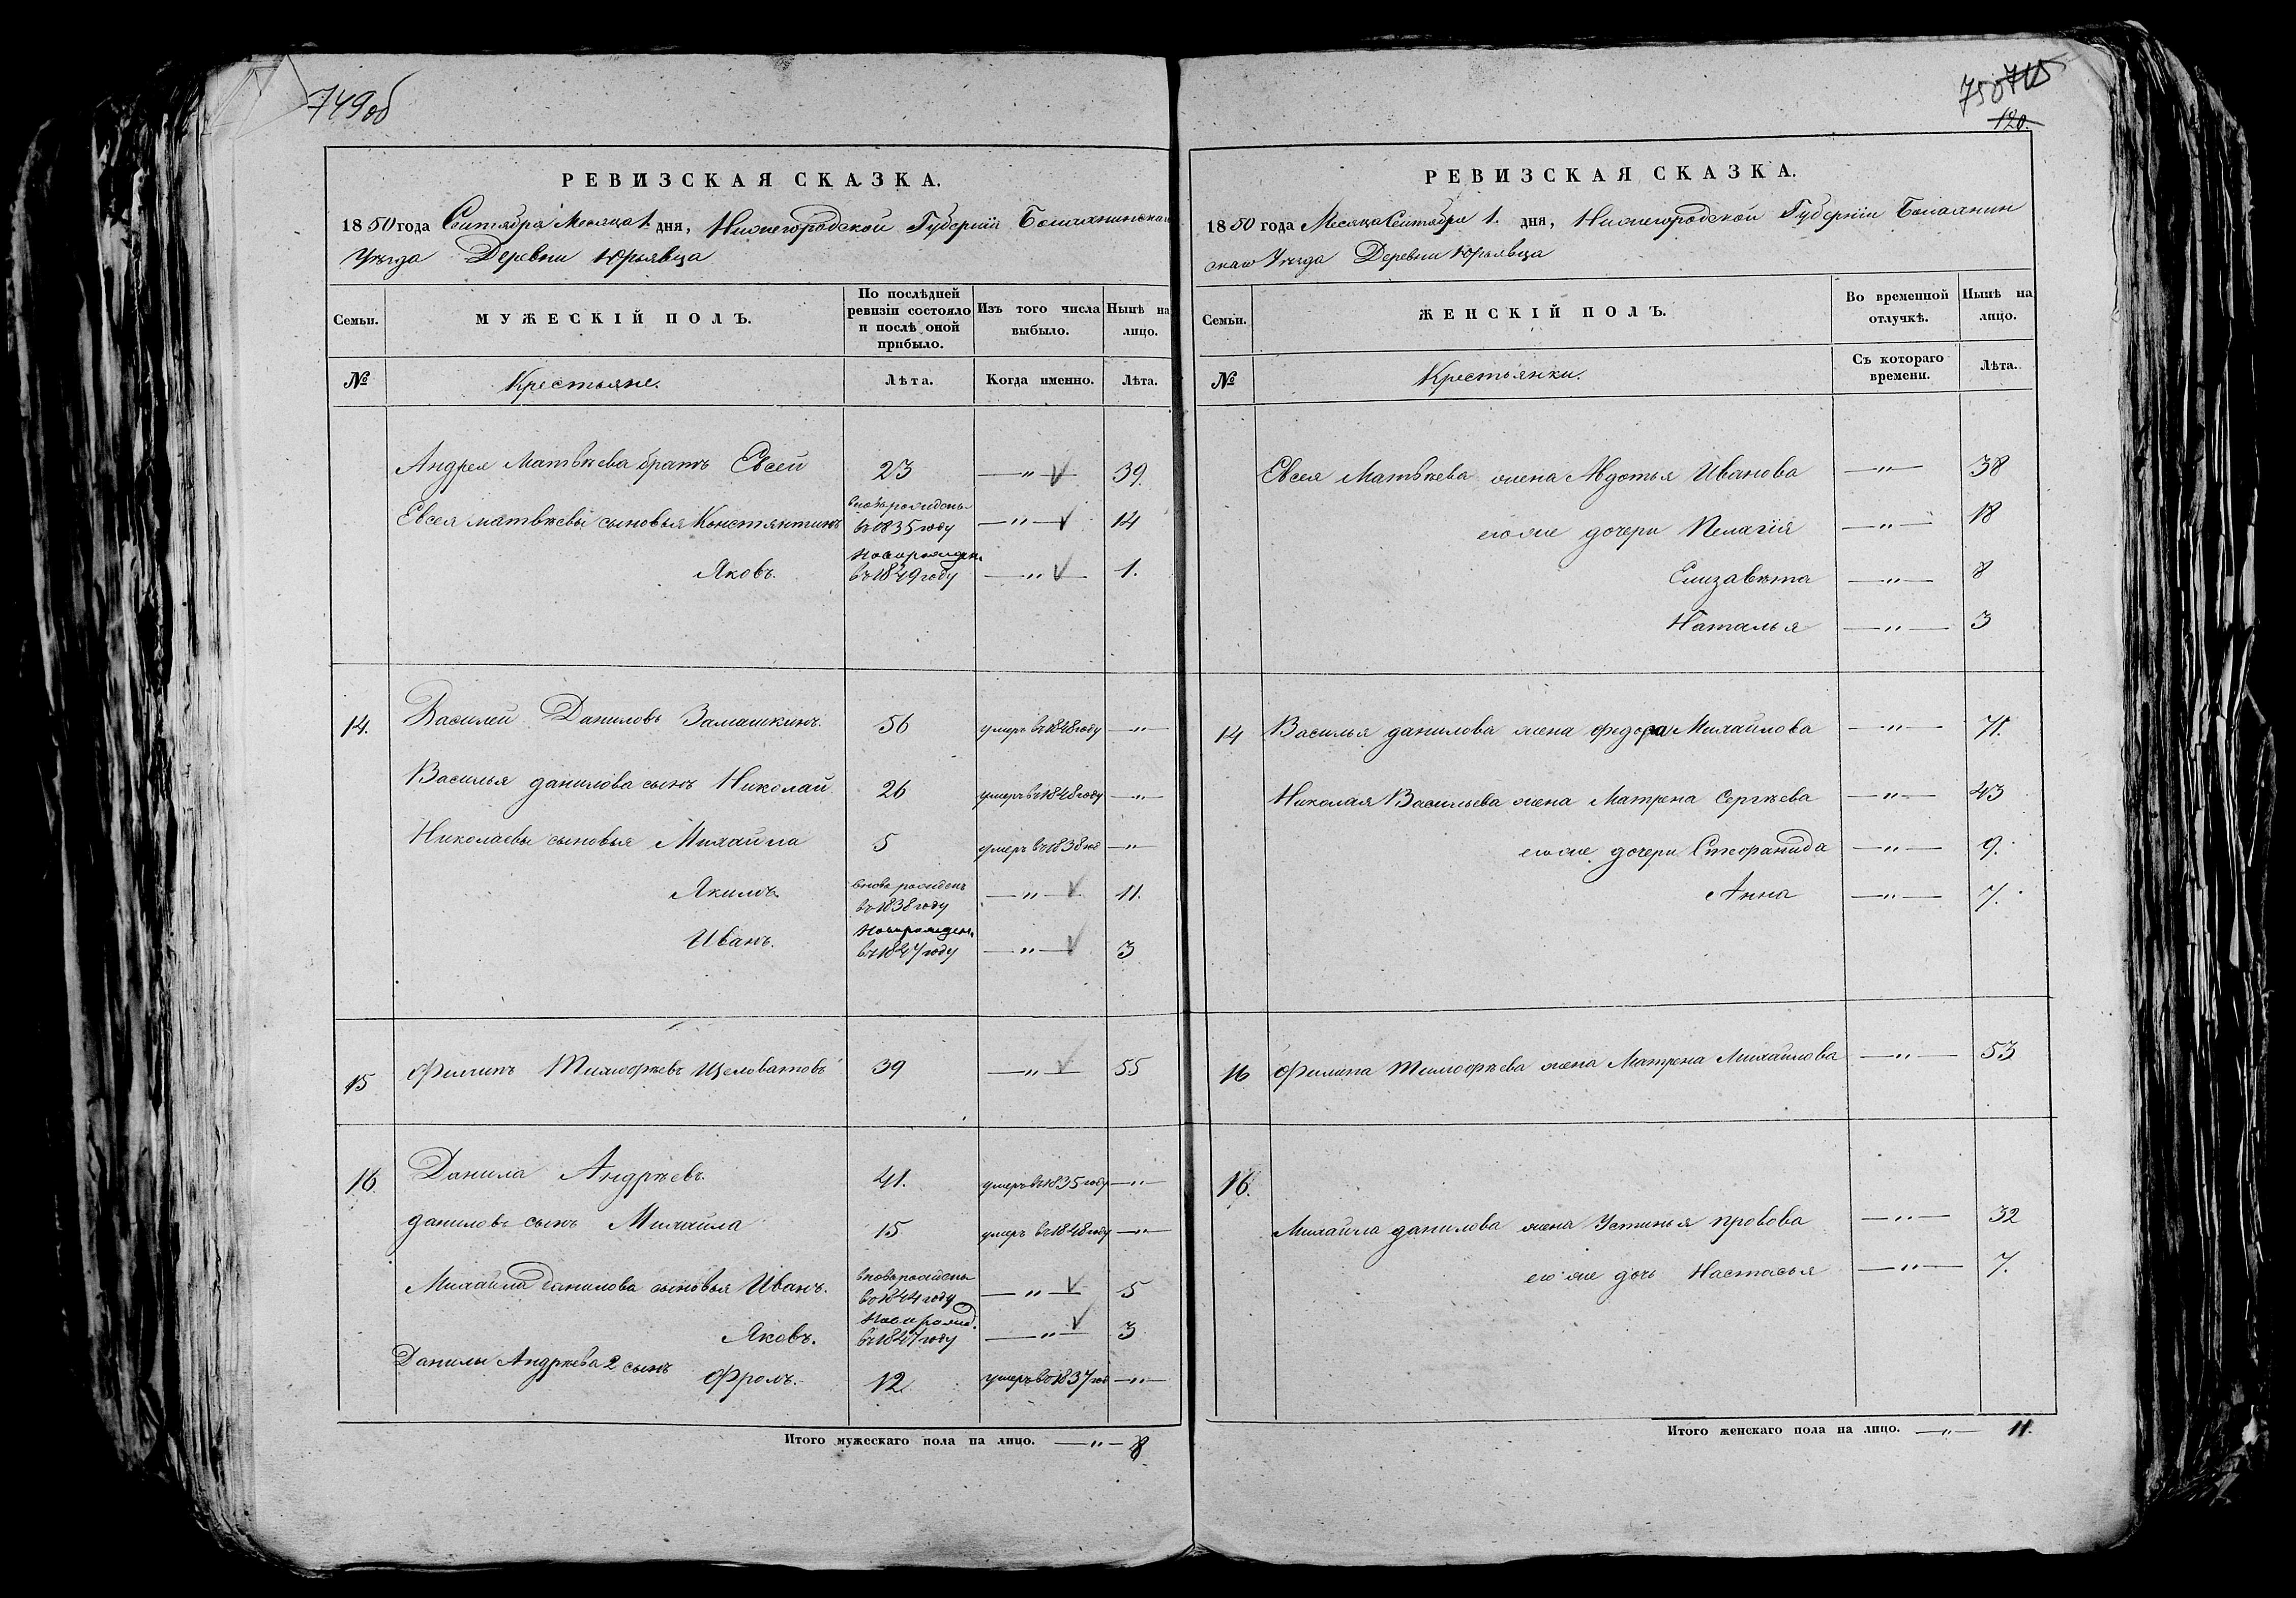 749об
РЕВИЗСКАЯ СКАЗКА.
1850 года Сентября Месяца 1. дня, Нижегородской Губерніи Балахнинскаго
Уѣзда Деревни Юрьявца
Семьи. МУЖЕСКІЙ ПОЛЪ. По послѣдней ревизіи состояло и послѣ оной прибыло. Изъ того числа выбыло. Нынѣ на лицо.
№ Крестьяне. Лѣта. Когда именно. Лѣта.
Андрея Матвѣева братъ Евсей 23 —"— 39.
Евсея матвѣевы сыновья Констянтинъ вновьрожденъ въ 1835 году —"— 14
Яковъ. Новорожден. въ 1849 году —"— 1.
14. Василей Даниловъ Замашкинъ. 56 умеръ въ 1848 году —"—
Василья данилова сынъ Николай 26 умеръ въ 1848 году —"—
Николаевы сыновья Михайла 5 умеръ въ 1838 год —"—
Якимъ. вновь рожденъ въ 1838 году —"— 11.
Иванъ. Новорожден. въ 1847 году —"— 3
15 Филипъ Тимофѣевъ Щеловатовъ 39 —"— 55
16. Данила Андрѣевъ. 41. умеръ въ 1835 году —"—
даниловъ сынъ Михайла 15 умеръ въ 1848 году —"—
Михайла Данилова сыновья Иванъ. вновьрожденъ въ 1844 году —"— 5
Яковъ. Новорожд. въ 1847 году —"— 3
Данилы Андрѣева 2 сынъ Фролъ. 12 умеръ въ 1837 год —"—
Итого мужескаго пола на лицо. —"— 8
750 715
120.
РЕВИЗСКАЯ СКАЗКА.
1850 года Месяца Сентября 1. дня, Нижегородской Губерніи Балахнин
скаго Уѣзда Деревни Юрьявца
Семьи. ЖЕНСКІЙ ПОЛЪ. Во временной отлучкѣ. Нынѣ на лицо.
№ Крестьянки. Съ котораго времени. Лѣта.
Евсея Матвѣева жена Авдотья Иванова —"— 38
егоже дочери Пелагія —"— 18
Елизавѣта —"— 8
Наталья —"— 3
14 Василья данилова жена федора Михайлова —"— 71.
Николая Васильева жена Матрена Сергѣева —"— 43
егоже дочери Стефанида —"— 9.
Анна —"— 7.
16 Филипа Тимофѣева жена Матрена Михайлова —"— 53
16. Михайла данилова жена Устинья провова —"— 32
его же дочь Настасья —"— 7.
Итого женскаго пола на лицо. —"— 11.